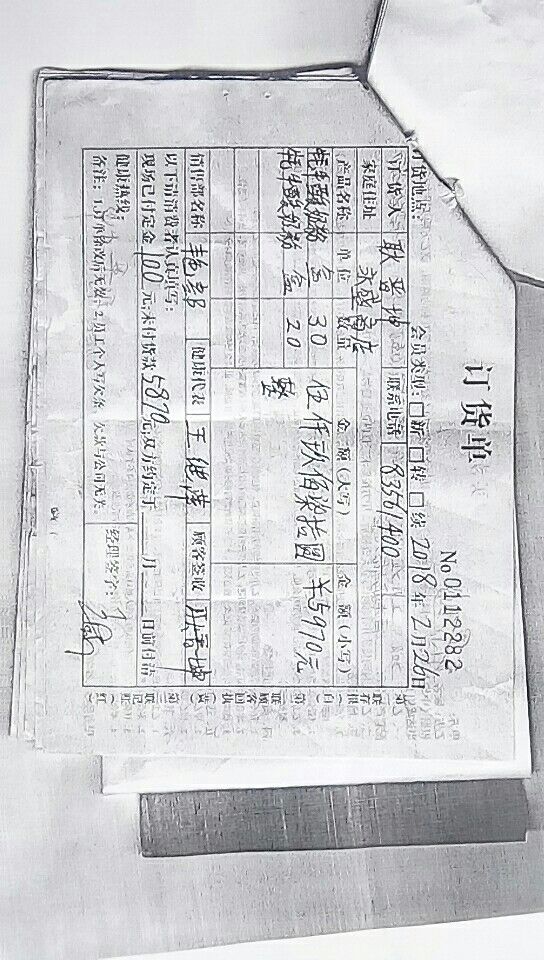 订货单
No 0112282
订货地点: 会员类型: □新 □转 □续 2018年2月26日
订货人 耿晋坤 联系电话 83561400
家庭住址 永盛商店
产品名称 单位 数量 金额(大写) 金额(小写)
牦牛酸奶粉 盒 30 伍仟玖佰柒拾圆 ¥5970元
牦牛酸奶粉 盒 20 整
销售部名称 艳部 健康代表 王继萍 顾客签收 耿晋坤
以下请消费者认真填写:
现场已付定金100元;未付货款5870元;双方约定于 月 日前付清。
健康热线: 经理签字:
备注: 1.订单涂改后无效; 2.员工个人写欠条、欠款与公司无关。
第一联存根(白) 第二联顾客回执(黄) 第三联记账(红)